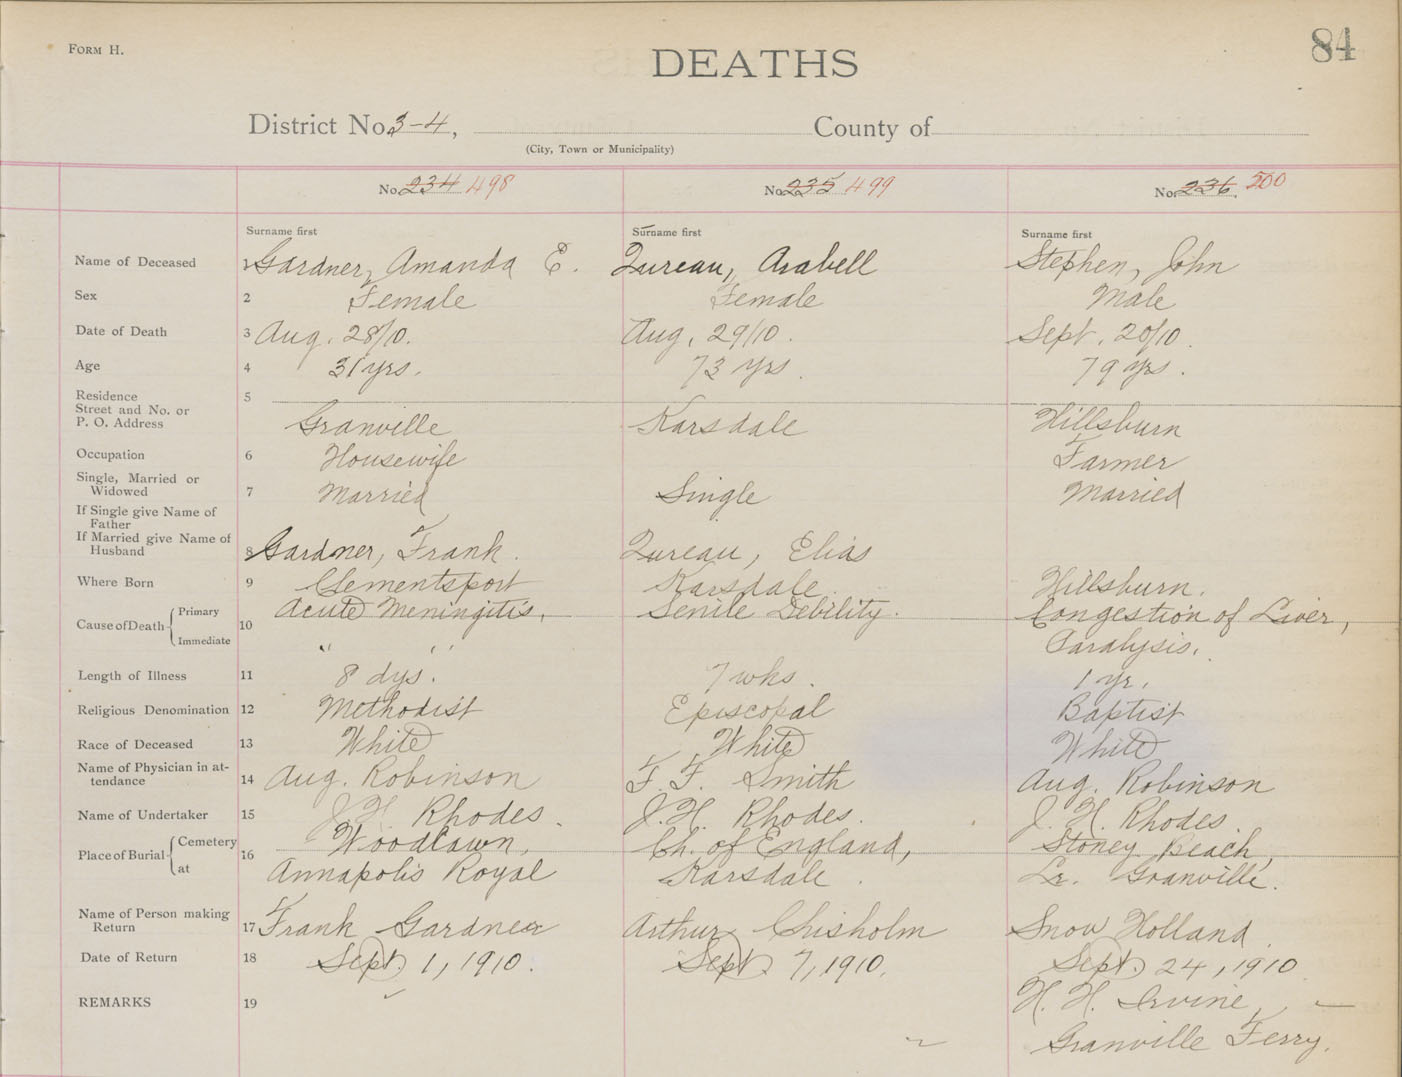 FORM H.
84
DEATHS
District No. 3-4, County of
(City, Town or Municipality)
No. 234 498 No. 235 499 No. 236. 500
Surname first Surname first Surname first
Name of Deceased 1 Gardner, Amanda E. Zureau, Arabell Stephen, John
Sex 2 Female Female Male
Date of Death 3 Aug. 28/10. Aug. 29/10. Sept. 20/10.
Age 4 31 yrs. 73 yrs. 79 yrs.
Residence 5
Street and No. or
P. O. Address Granville Karsdale Hillsburn
Occupation 6 Housewife Farmer
Single, Married or
Widowed 7 Married Single Married
If Single give Name of
Father
If Married give Name of
Husband 8 Gardner, Frank. Zureau, Elias
Where Born 9 Clementsport Karsdale. Hillsburn.
Cause of Death Primary 10 Acute Meningitis. Senile Debility. Congestion of Liver,
Immediate " " Paralysis.
Length of Illness 11 8 dys. 7 wks. 1 yr.
Religious Denomination 12 Methodist Episcopal Baptist
Race of Deceased 13 White White White
Name of Physician in at-
tendance 14 Aug. Robinson F. F. Smith Aug. Robinson
Name of Undertaker 15 J. H. Rhodes. J. H. Rhodes. J. H. Rhodes.
Place of Burial Cemetery 16 Woodlawn, Ch. of England, Stoney Beach,
at Annapolis Royal Karsdale. Lr. Granville.
Name of Person making
Return 17 Frank Gardner Arthur Chisholm Snow Holland.
Date of Return 18 Sept. 1, 1910. Sept. 7, 1910. Sept. 24, 1910
REMARKS 19 H. H. Irvine,
Granville Ferry.